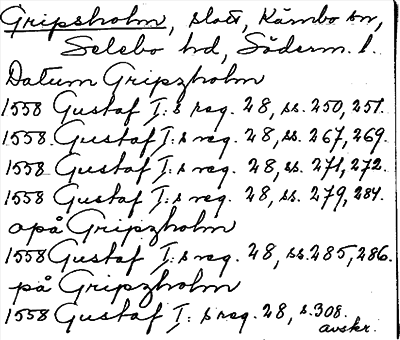 Gripsholm, slott, Kärnbo sn,
Selebo hd, Söderm. l.
Datum Gripzholm
1558 Gustaf I:s reg. 28, ss. 250, 251.
1558 Gustaf I:s reg. 28, ss. 267, 269.
1558 Gustaf I:s reg. 28, ss. 271, 272.
1558 Gustaf I:s reg. 28, ss. 279, 284.
opå Gripzholm
1558 Gustaf I:s reg. 28, ss. 285, 286.
på Gripzholm
1558 Gustaf I:s reg. 28, s. 308.
avskr.